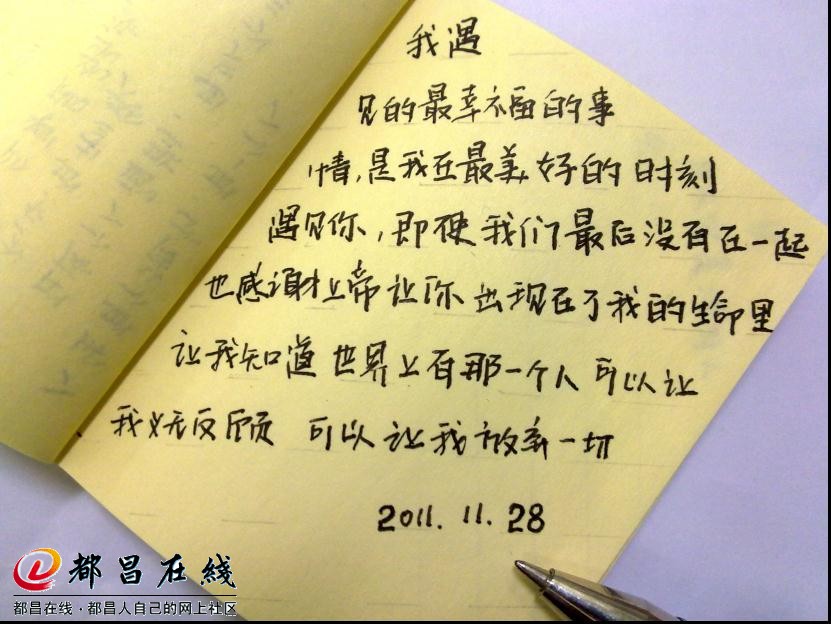 我遇
见的最幸福的事
情,是我在最美好的时刻
遇见你,即使我们最后没有在一起
也感谢上帝让你出现在了我的生命里
让我知道世界上有那一个人可以让
我义无反顾 可以让我放弃一切
2011.11.28
都昌在线
都昌在线·都昌人自己的网上社区